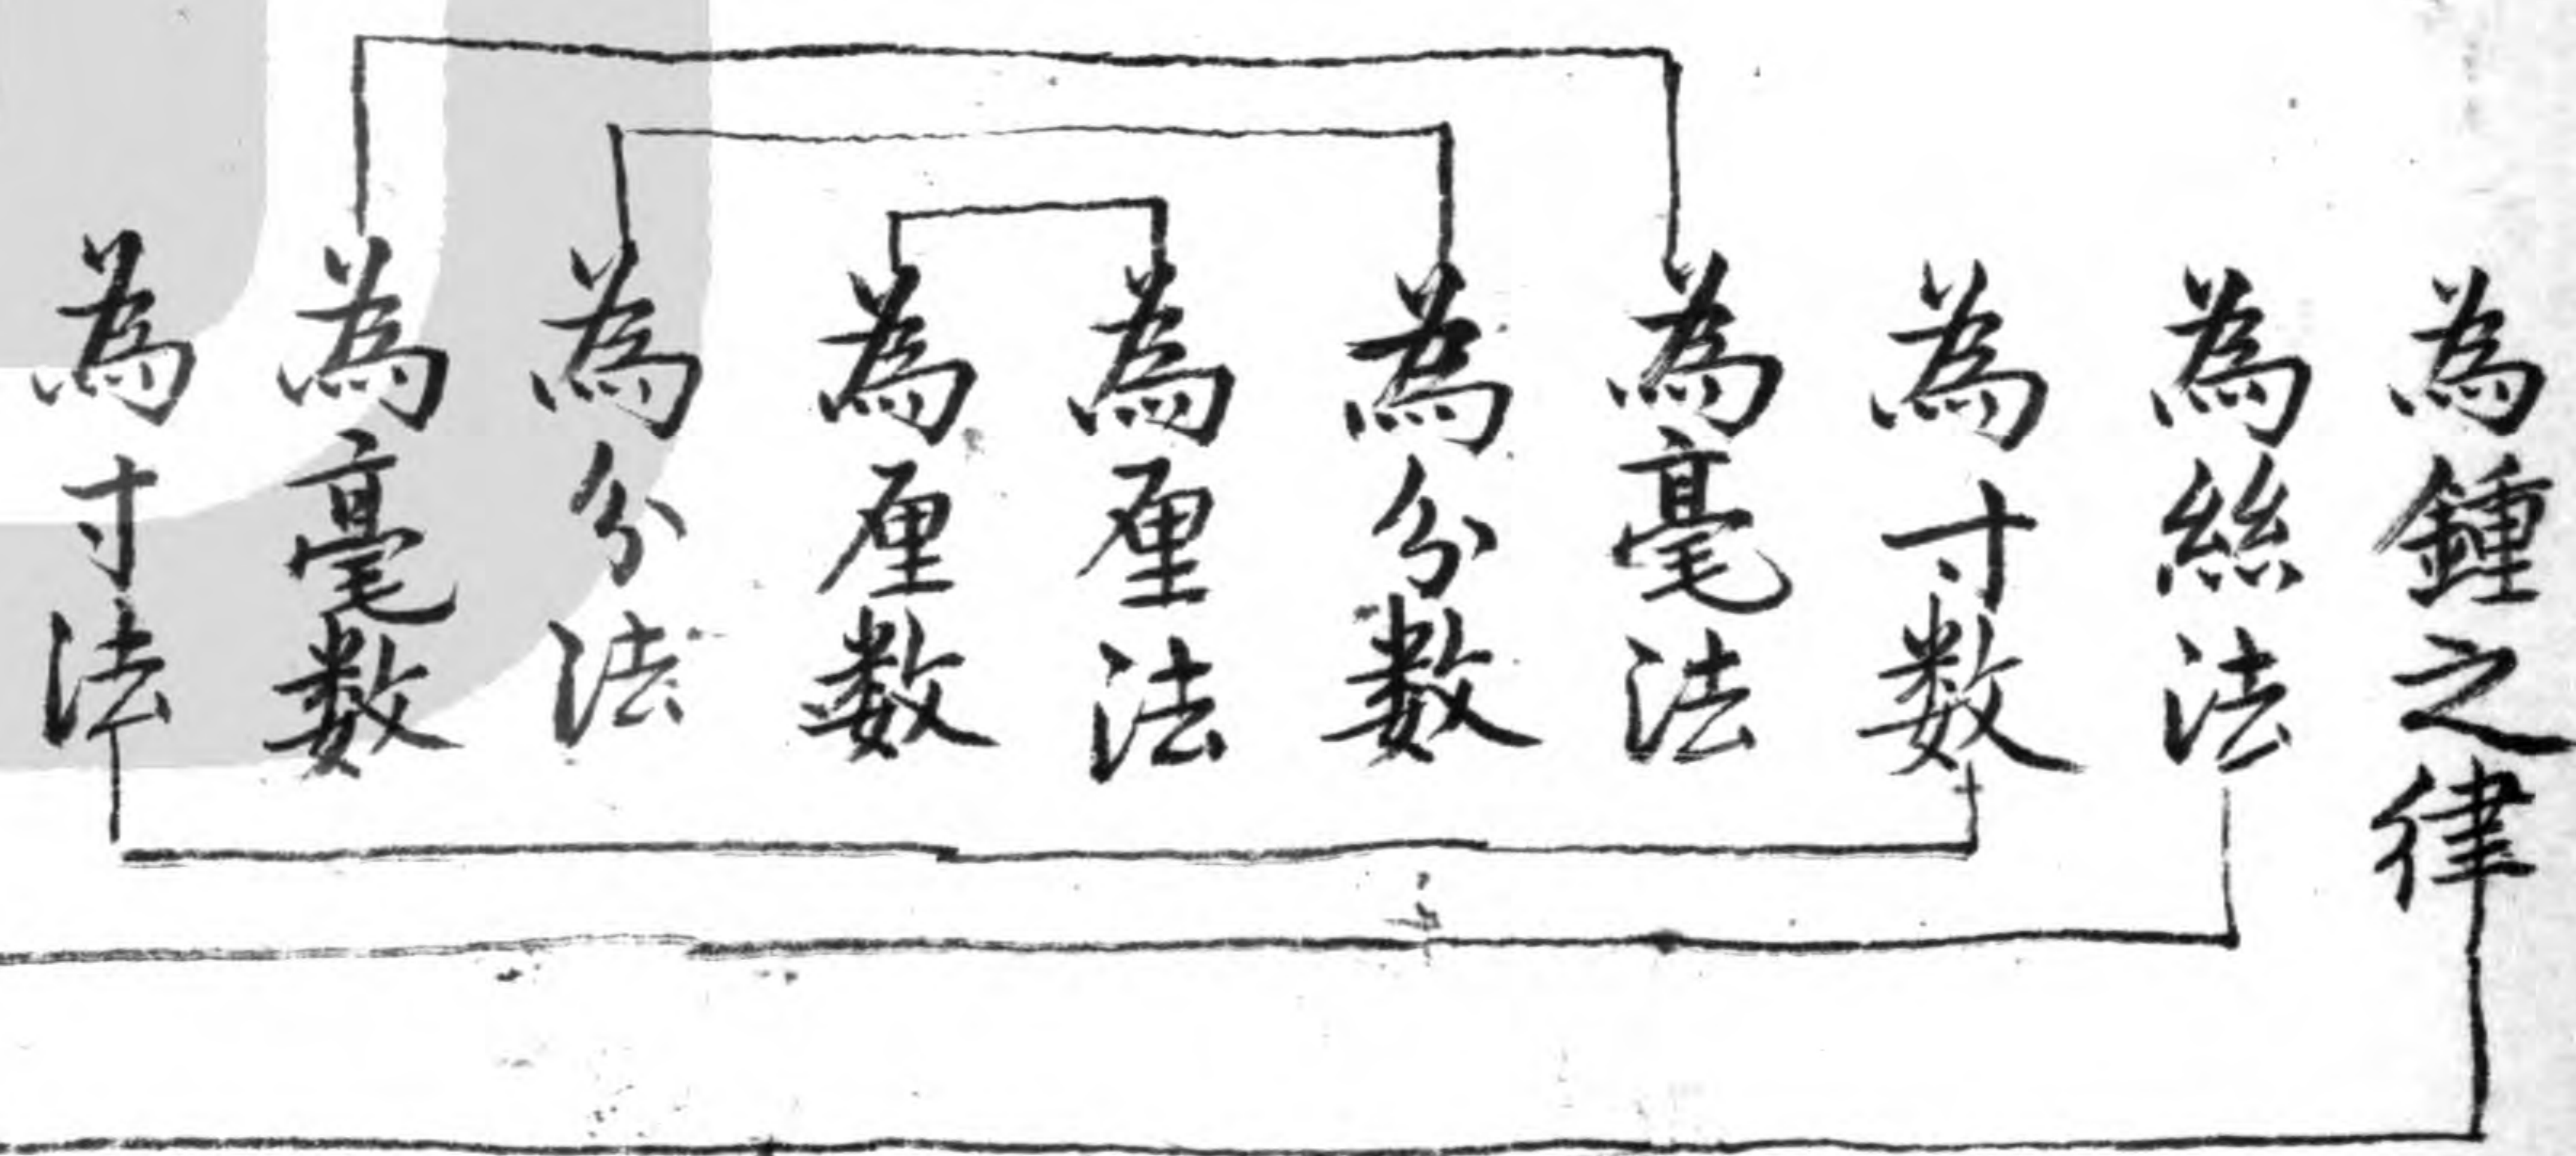 為鍾之律
為絲法
為寸数
為毫法
為分数
為厘法
為厘数
為分法
為毫数
為寸法